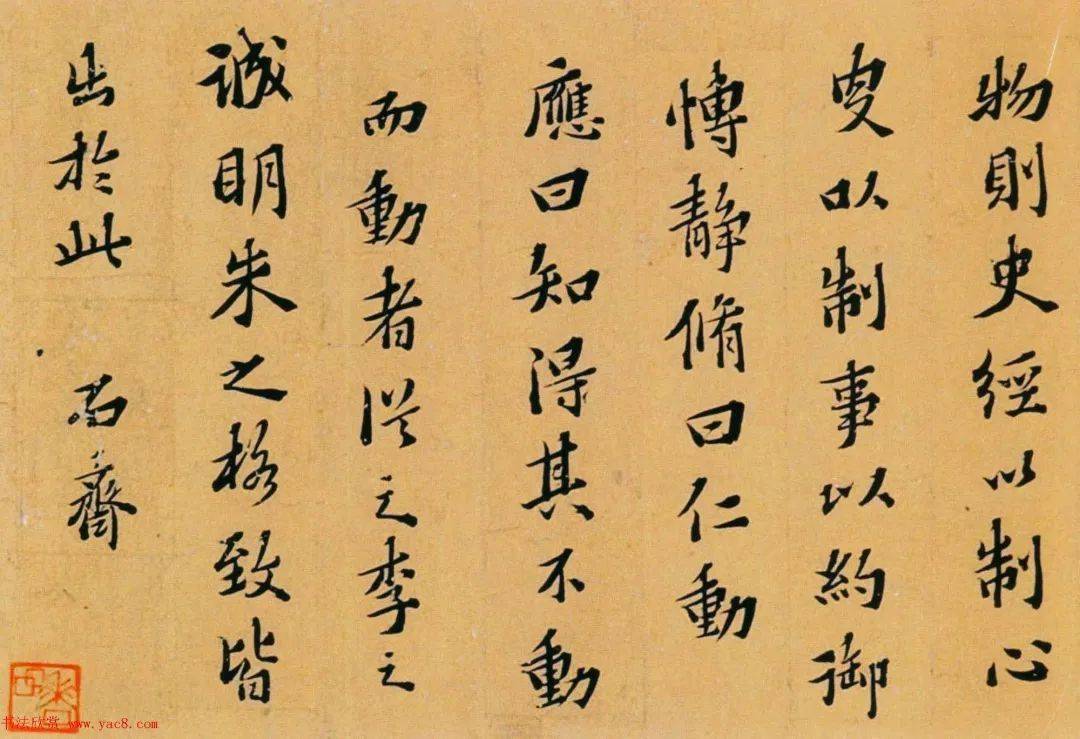 物則史經以制心
史以制事以約御
博静脩曰仁動
應曰知得其不動
而動者從之李之
誠明朱之格致皆
出於此 石齋
书法欣赏 www.yac8.com